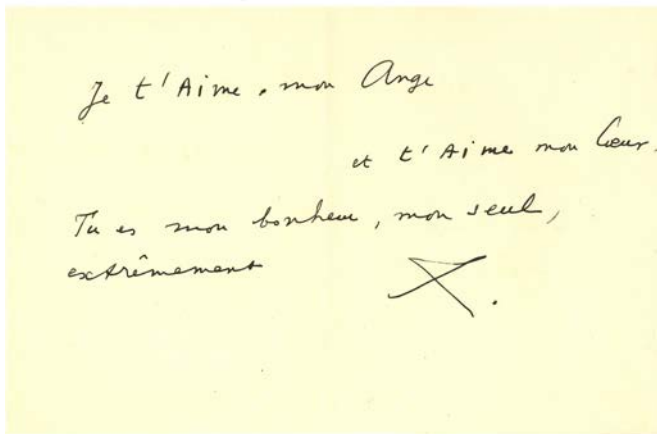 Je t'Aime, mon Ange
et t'Aime mon Cœur.
Tu es mon bonheur, mon seul,
extrêmement